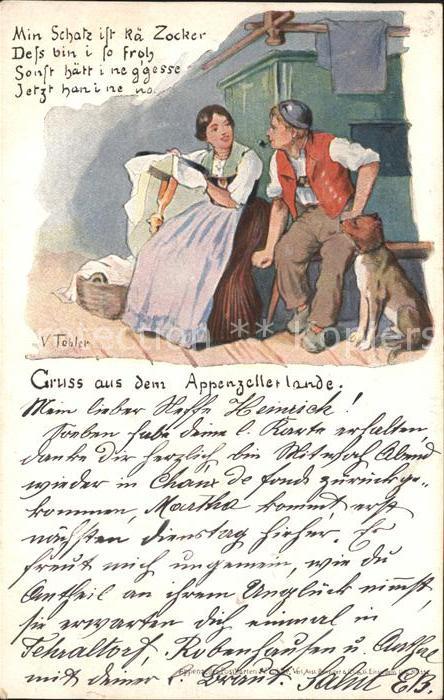 Min Schatz ist kå Zocker
Dess bin i so froh
Sonst hätt i ne g'gesse
Jetzt han i ne no.
V Tobler
Gruss aus dem Appenzellerlande.
Mein lieber Neffe Heinrich!
Soeben habe deine l. Karte erhalten
danke dir herzlich, bin Abend
wieder in Chaux de fonds zurückge-
kommen, Martha kommt erst
nächsten Dienstag hieher. Es
freut mich ungemein, wie du
Antheil an ihrem Unglück nimmst,
sie erwarten dich einmal in
Fehraltorf, Robenhausen u.
mit deiner l. Braut.